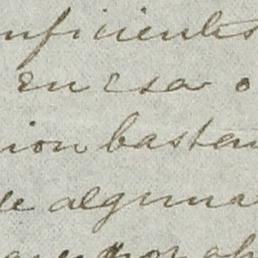 nficientes
en esa o
ion bastan
de alguna